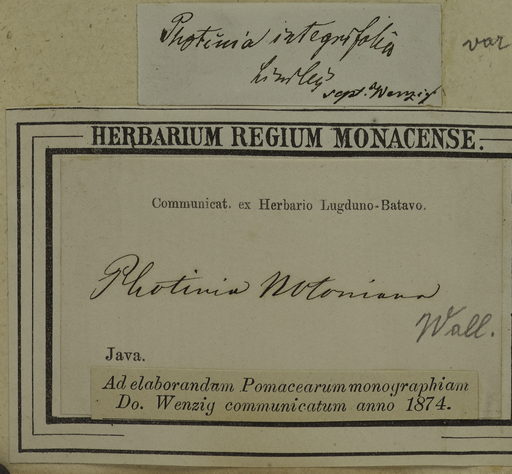 Photinia integrifolia
Lindley
sept. Wenzig
var
HERBARIUM REGIUM MONACENSE.
Communicat. ex Herbario Lugduno-Batavo.
Photinia Notoniana
Wall.
Java.
Ad elaborandum Pomacearum monographiam
Do. Wenzig communicatum anno 1874.